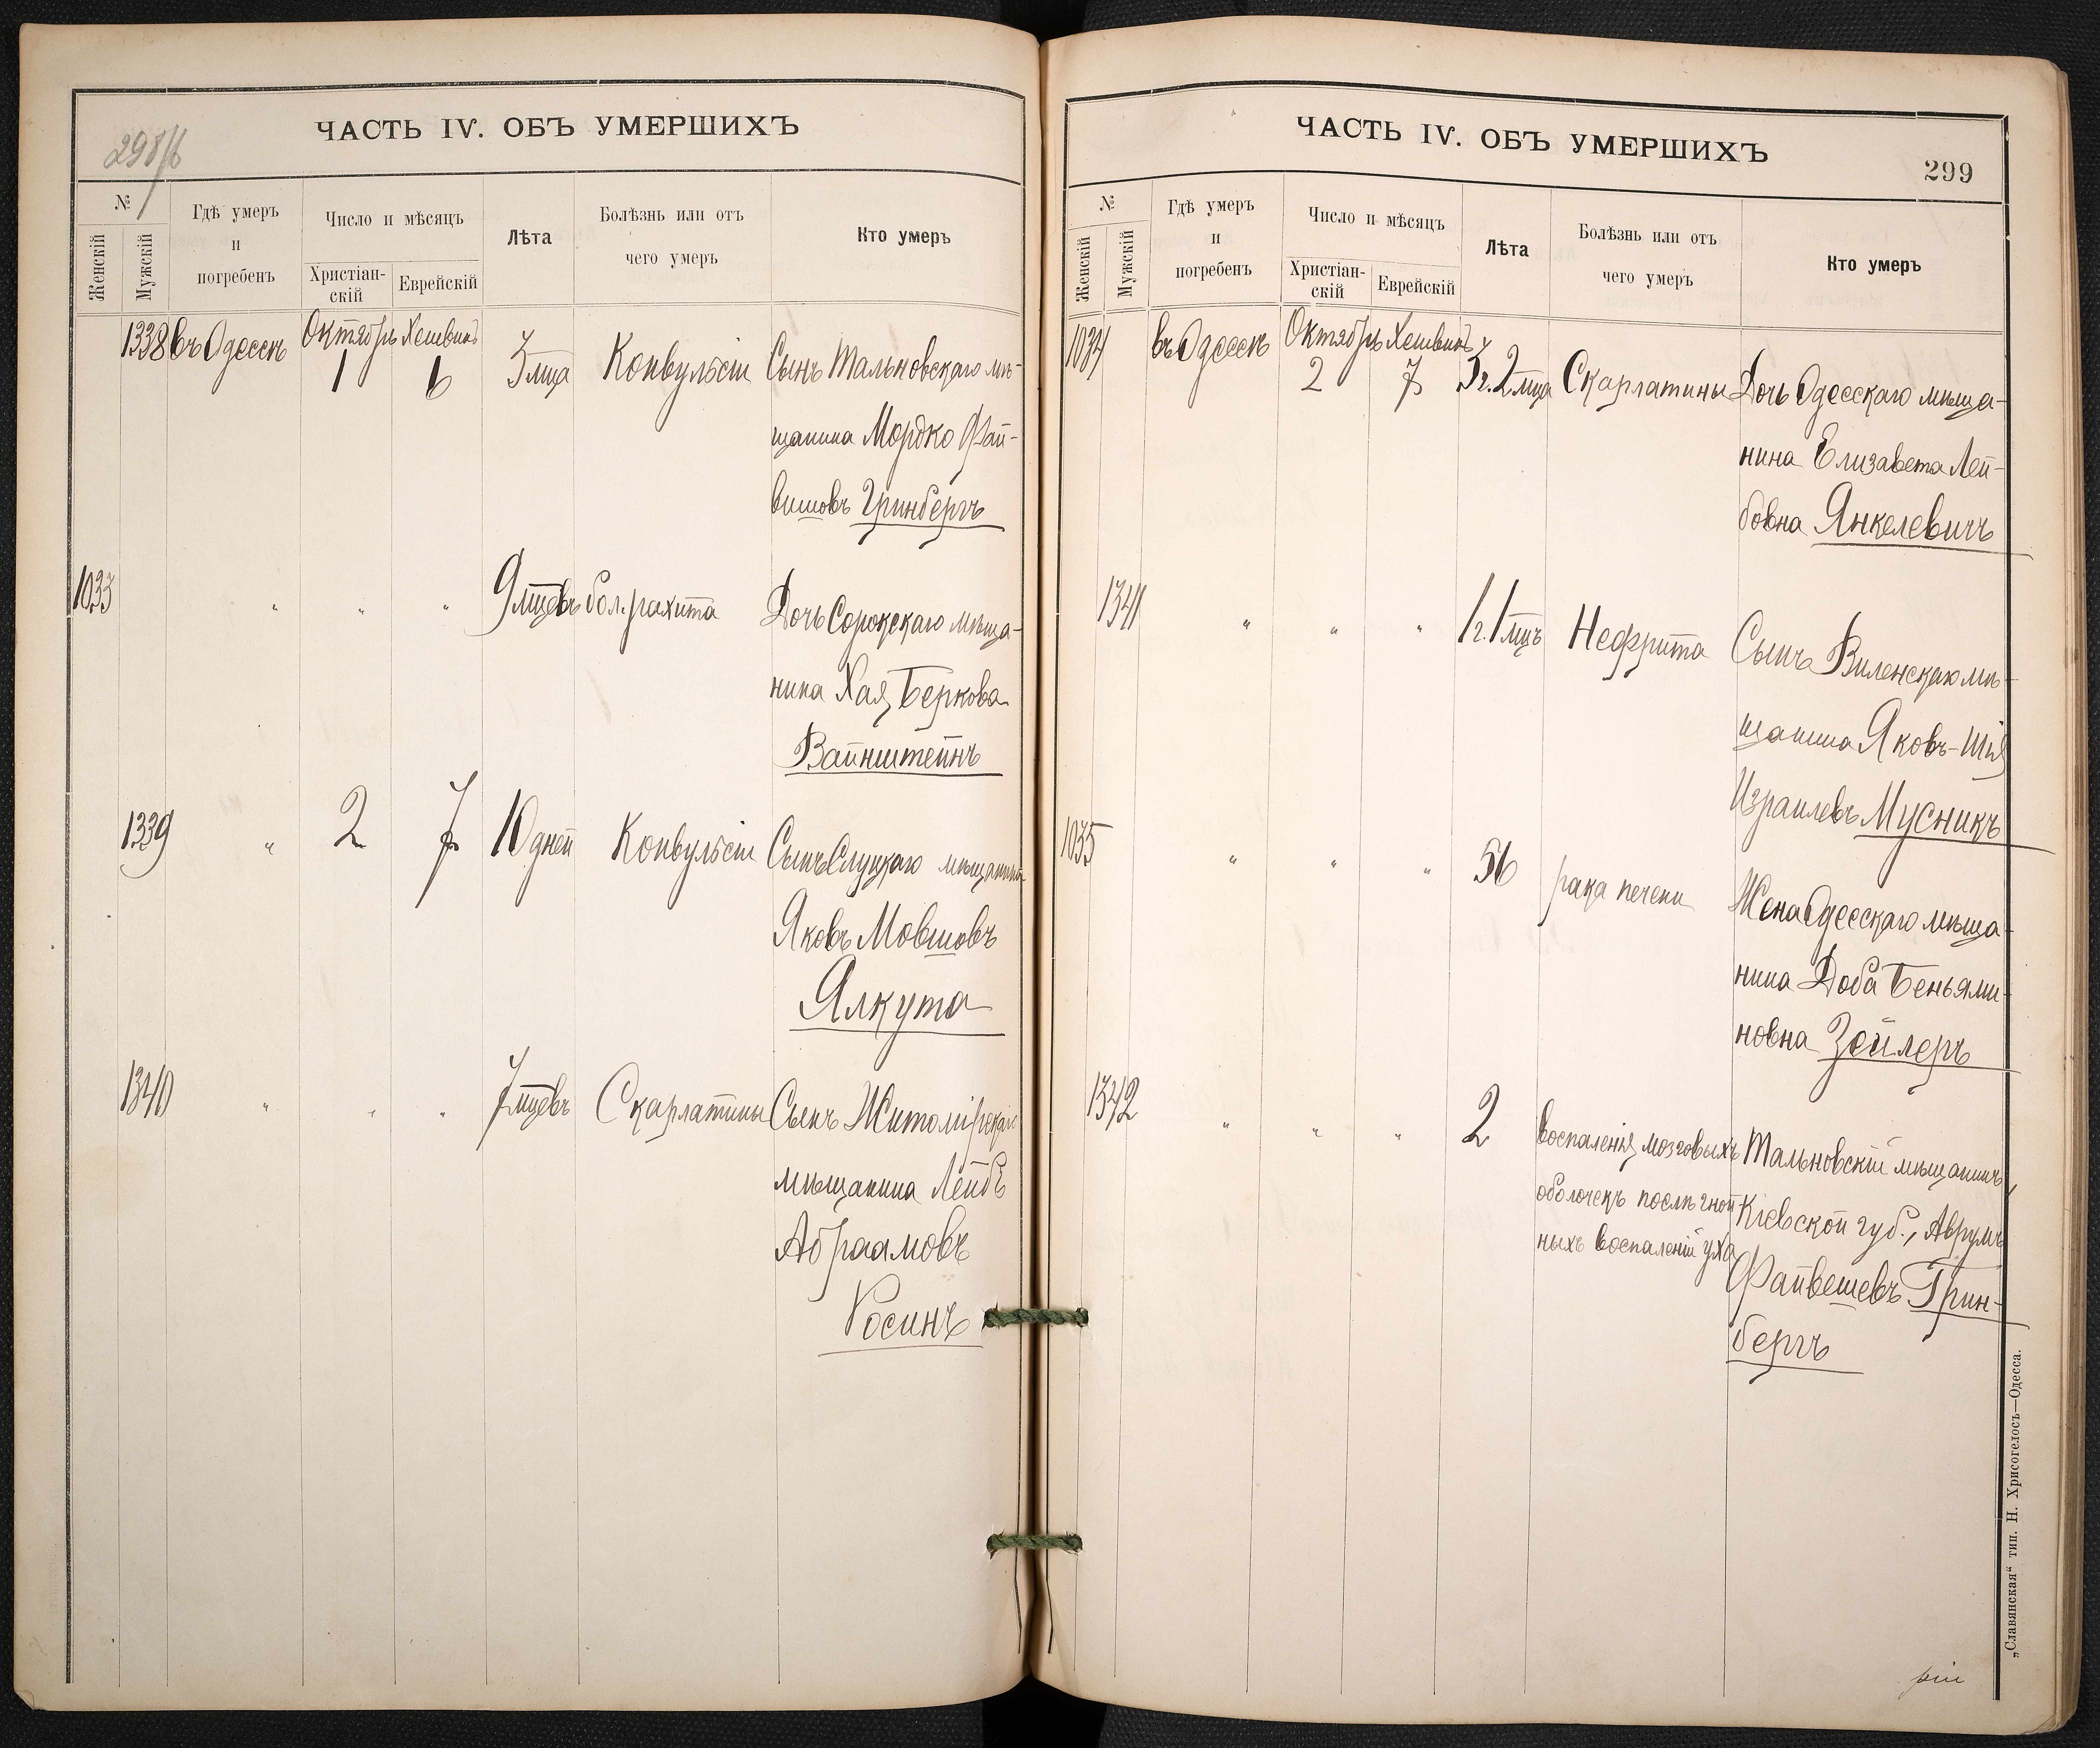 298/б
ЧАСТЬ IV. ОБЪ УМЕРШИХЪ
№
Женскій
Мужскій
Гдѣ умеръ
и
погребенъ
Число и мѣсяцъ
Христіан-
скій
Еврейскій
Лѣта
Болѣзнь или отъ
чего умеръ
Кто умеръ
1338 въ Одессѣ Октябрь Хешвинъ
1 6 3 мца Конвульсіи Сынъ Тальновскаго мѣ-
щанина Мордко Фай-
вишовъ Гринбергъ
1033 " " " 9 мцевъ бол. рахита Дочь Сорокскаго мѣща-
нина Хая Беркова
Вайнштейнъ
1339 " 2 7 10 дней Конвульсіи Сынъ Слуцкаго мѣщанина
Яковъ Мовшовъ
Ялкута
1340 " " " 7 мцевъ Скарлатины Сынъ Житомірскаго
мѣщанина Лейбъ
Абраамовъ
Росинъ
ЧАСТЬ IV. ОБЪ УМЕРШИХЪ
299
№
Женскій
Мужскій
Гдѣ умеръ
и
погребенъ
Число и мѣсяцъ
Христіан-
скій
Еврейскій
Лѣта
Болѣзнь или отъ
чего умеръ
Кто умеръ
1034 въ Одессѣ Октябрь Хешвинъ
2 7 3 г. 2 мца Скарлатины Дочь Одесскаго мѣща-
нина Елизавета Лей-
бовна Янкелевичъ
1341 " " " 1 г. 1 мцъ Нефрита Сынъ Виленскаго мѣ-
щанина Яковъ-Шія
Израилевъ Мусникъ
1035 " " " 56 рака печени Жена Одесскаго мѣща-
нина Доба Беньями-
новна Зейлеръ
1342 " " " 2 воспаленія мозговыхъ Тальновскій мѣщанинъ,
оболочекъ послѣ гной- Кіевской губ., Аврумъ
ныхъ воспаленій уха Файвешевъ Грин-
бергъ
„Славянская“ тип. Н. Хрисогелосъ—Одесса.